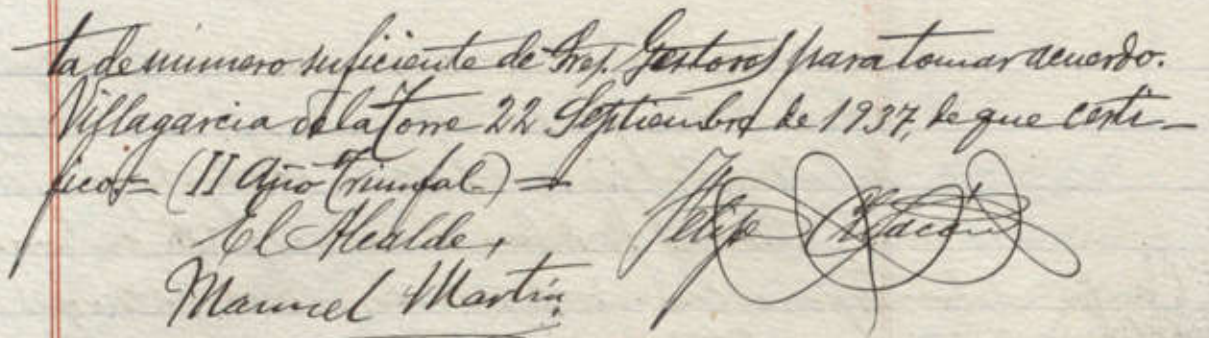 ta de número suficiente de Sres. Gestores para tomar acuerdo.
Villagarcia de la Torre 22 Septiembre de 1937, de que certi-
fico.= (II Año Triunfal) =
El Alcalde,
Manuel Martín
Felipe